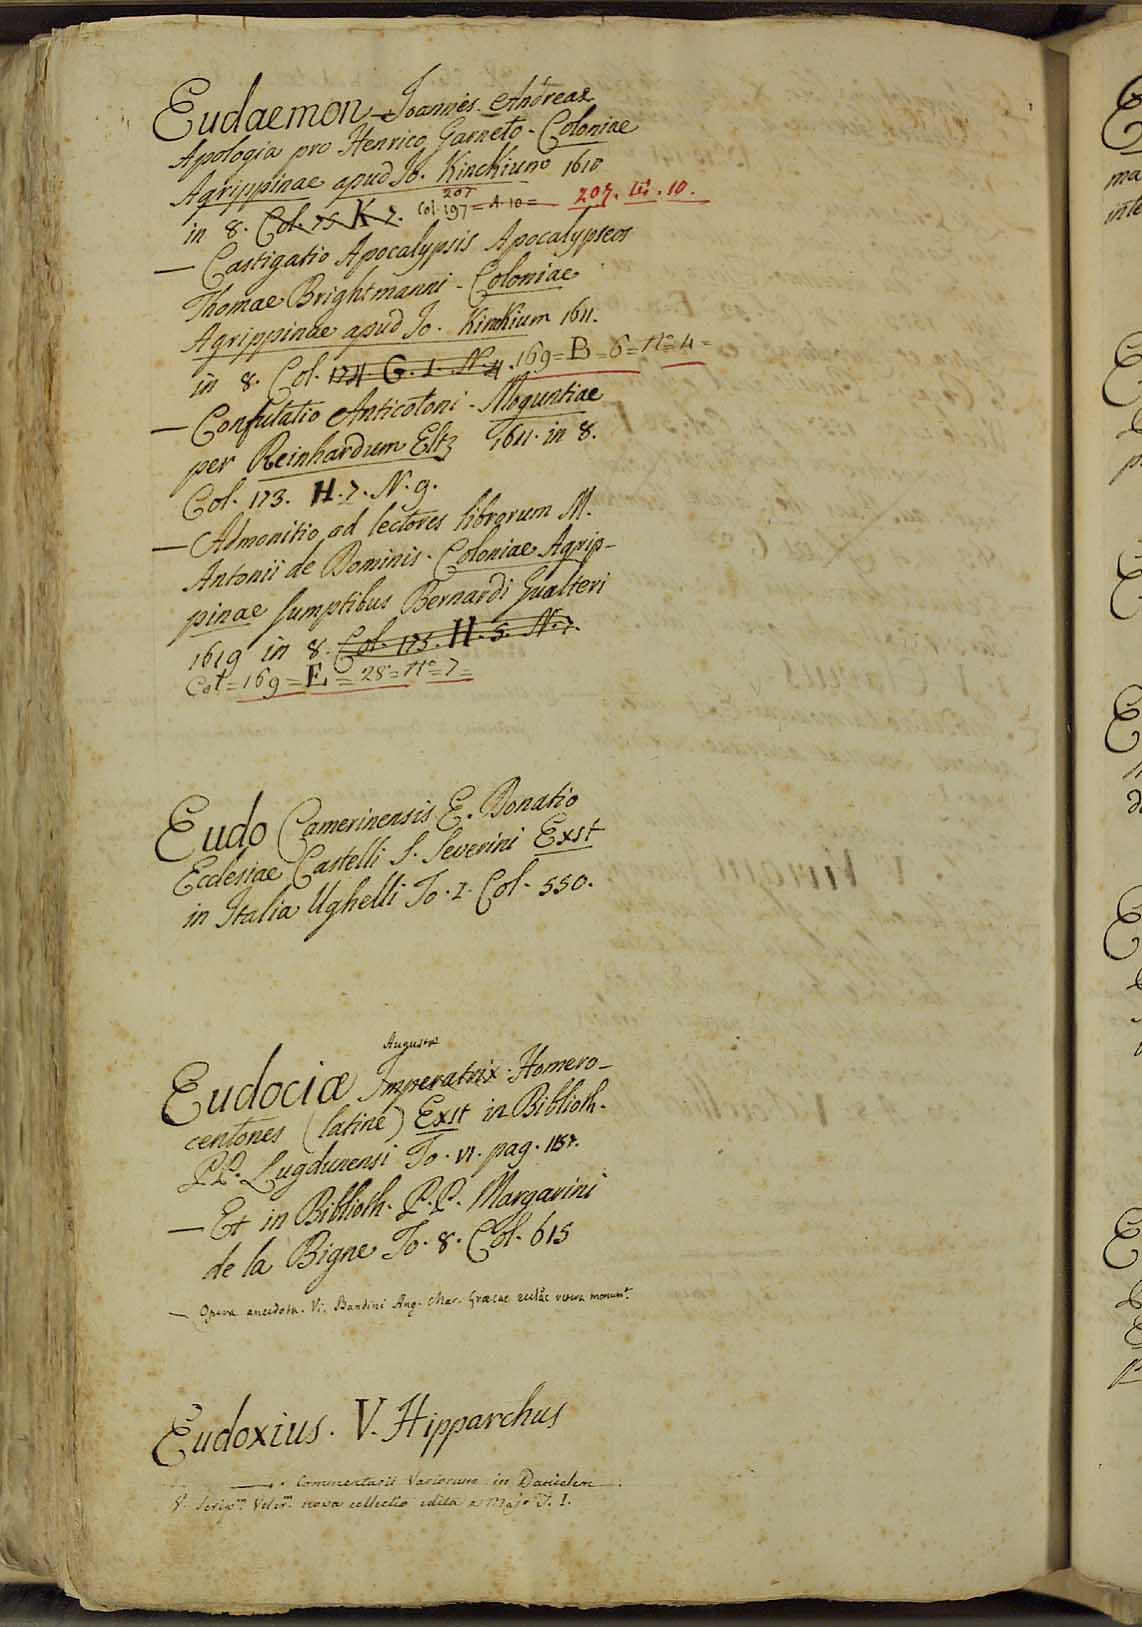 Eudaemon Joannes Andreas
Apologia pro Henrico Garneto - Coloniae
Agrippinae apud Jo. Kinckium 1610
in 8. Col. 75 K 7. Col. 197 = A 10 = 207 207. III. 10.
— Castigatio Apocalypsis Apocalypseos
Thomae Brightmanni - Coloniae
Agrippinae apud Jo. Kinckium 1611.
in 8. Col. 174. G. 1. N. 4. 169 = B = 6 = N° = 4 =
— Confutatio Anticotoni - Moguntiae
per Reinhardum Eltz 1611. in 8.
Col. 173. H. 7. N. 9.
— Admonitio ad lectores librorum M.
Antonii de Dominis. Coloniae Agrip-
pinae sumptibus Bernardi Gualteri
1619 in 8. Col. 175. H. 5. N. 7.
Col = 169 = E = 28 = N° = 7 =
Eudo Camerinensis E. Donatio
Ecclesiae Castelli S. Severini Exst
in Italia Ughelli To. I. Col. 550.
Augusta
Eudociæ Imperatrix. Homero-
centones (latine) Exst in Biblioth.
PP. Lugdunensi To. VI. pag. 1157.
— Et in Biblioth. P.P. Margarini
de la Bigne To. 8. Col. 615
— Opera anecdota. V. Bandini Ang. Mar. Graecae vetera monumt.
Eudoxius. V. Hipparchus
— Commentarii Variorum in Danielem.
V. Scripm. Veterm. nova collectio edita a Majo T. I.